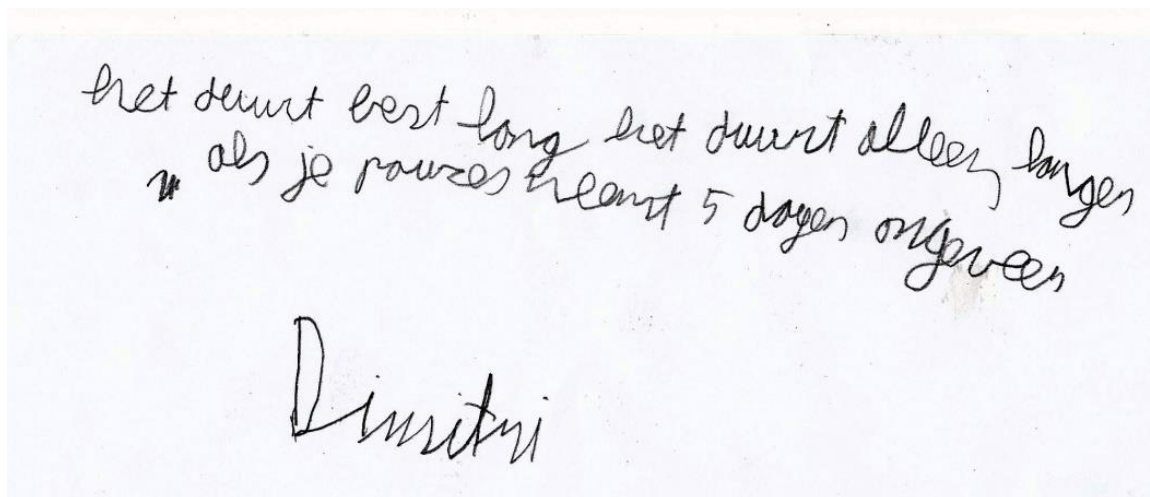 het duurt best lang het duurt alleen langer
als je pauzes neemt 5 dagen ongeveer
Dimitri